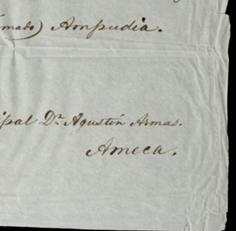 mato) Ampudia.
ipal Dn Agustín Armas.
Ameca.